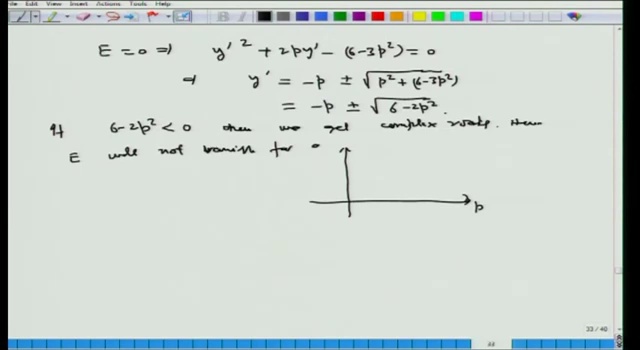 File Edit View Insert Actions Tools Help
E = 0 ⇒ y'² + 2py' - (6-3p²) = 0
⇒ y' = -p ± √p² + (6-3p²)
= -p ± √6-2p².
If 6-2p² < 0 then we get complex roots. Then
E will not vanish for
p
33 / 40
33